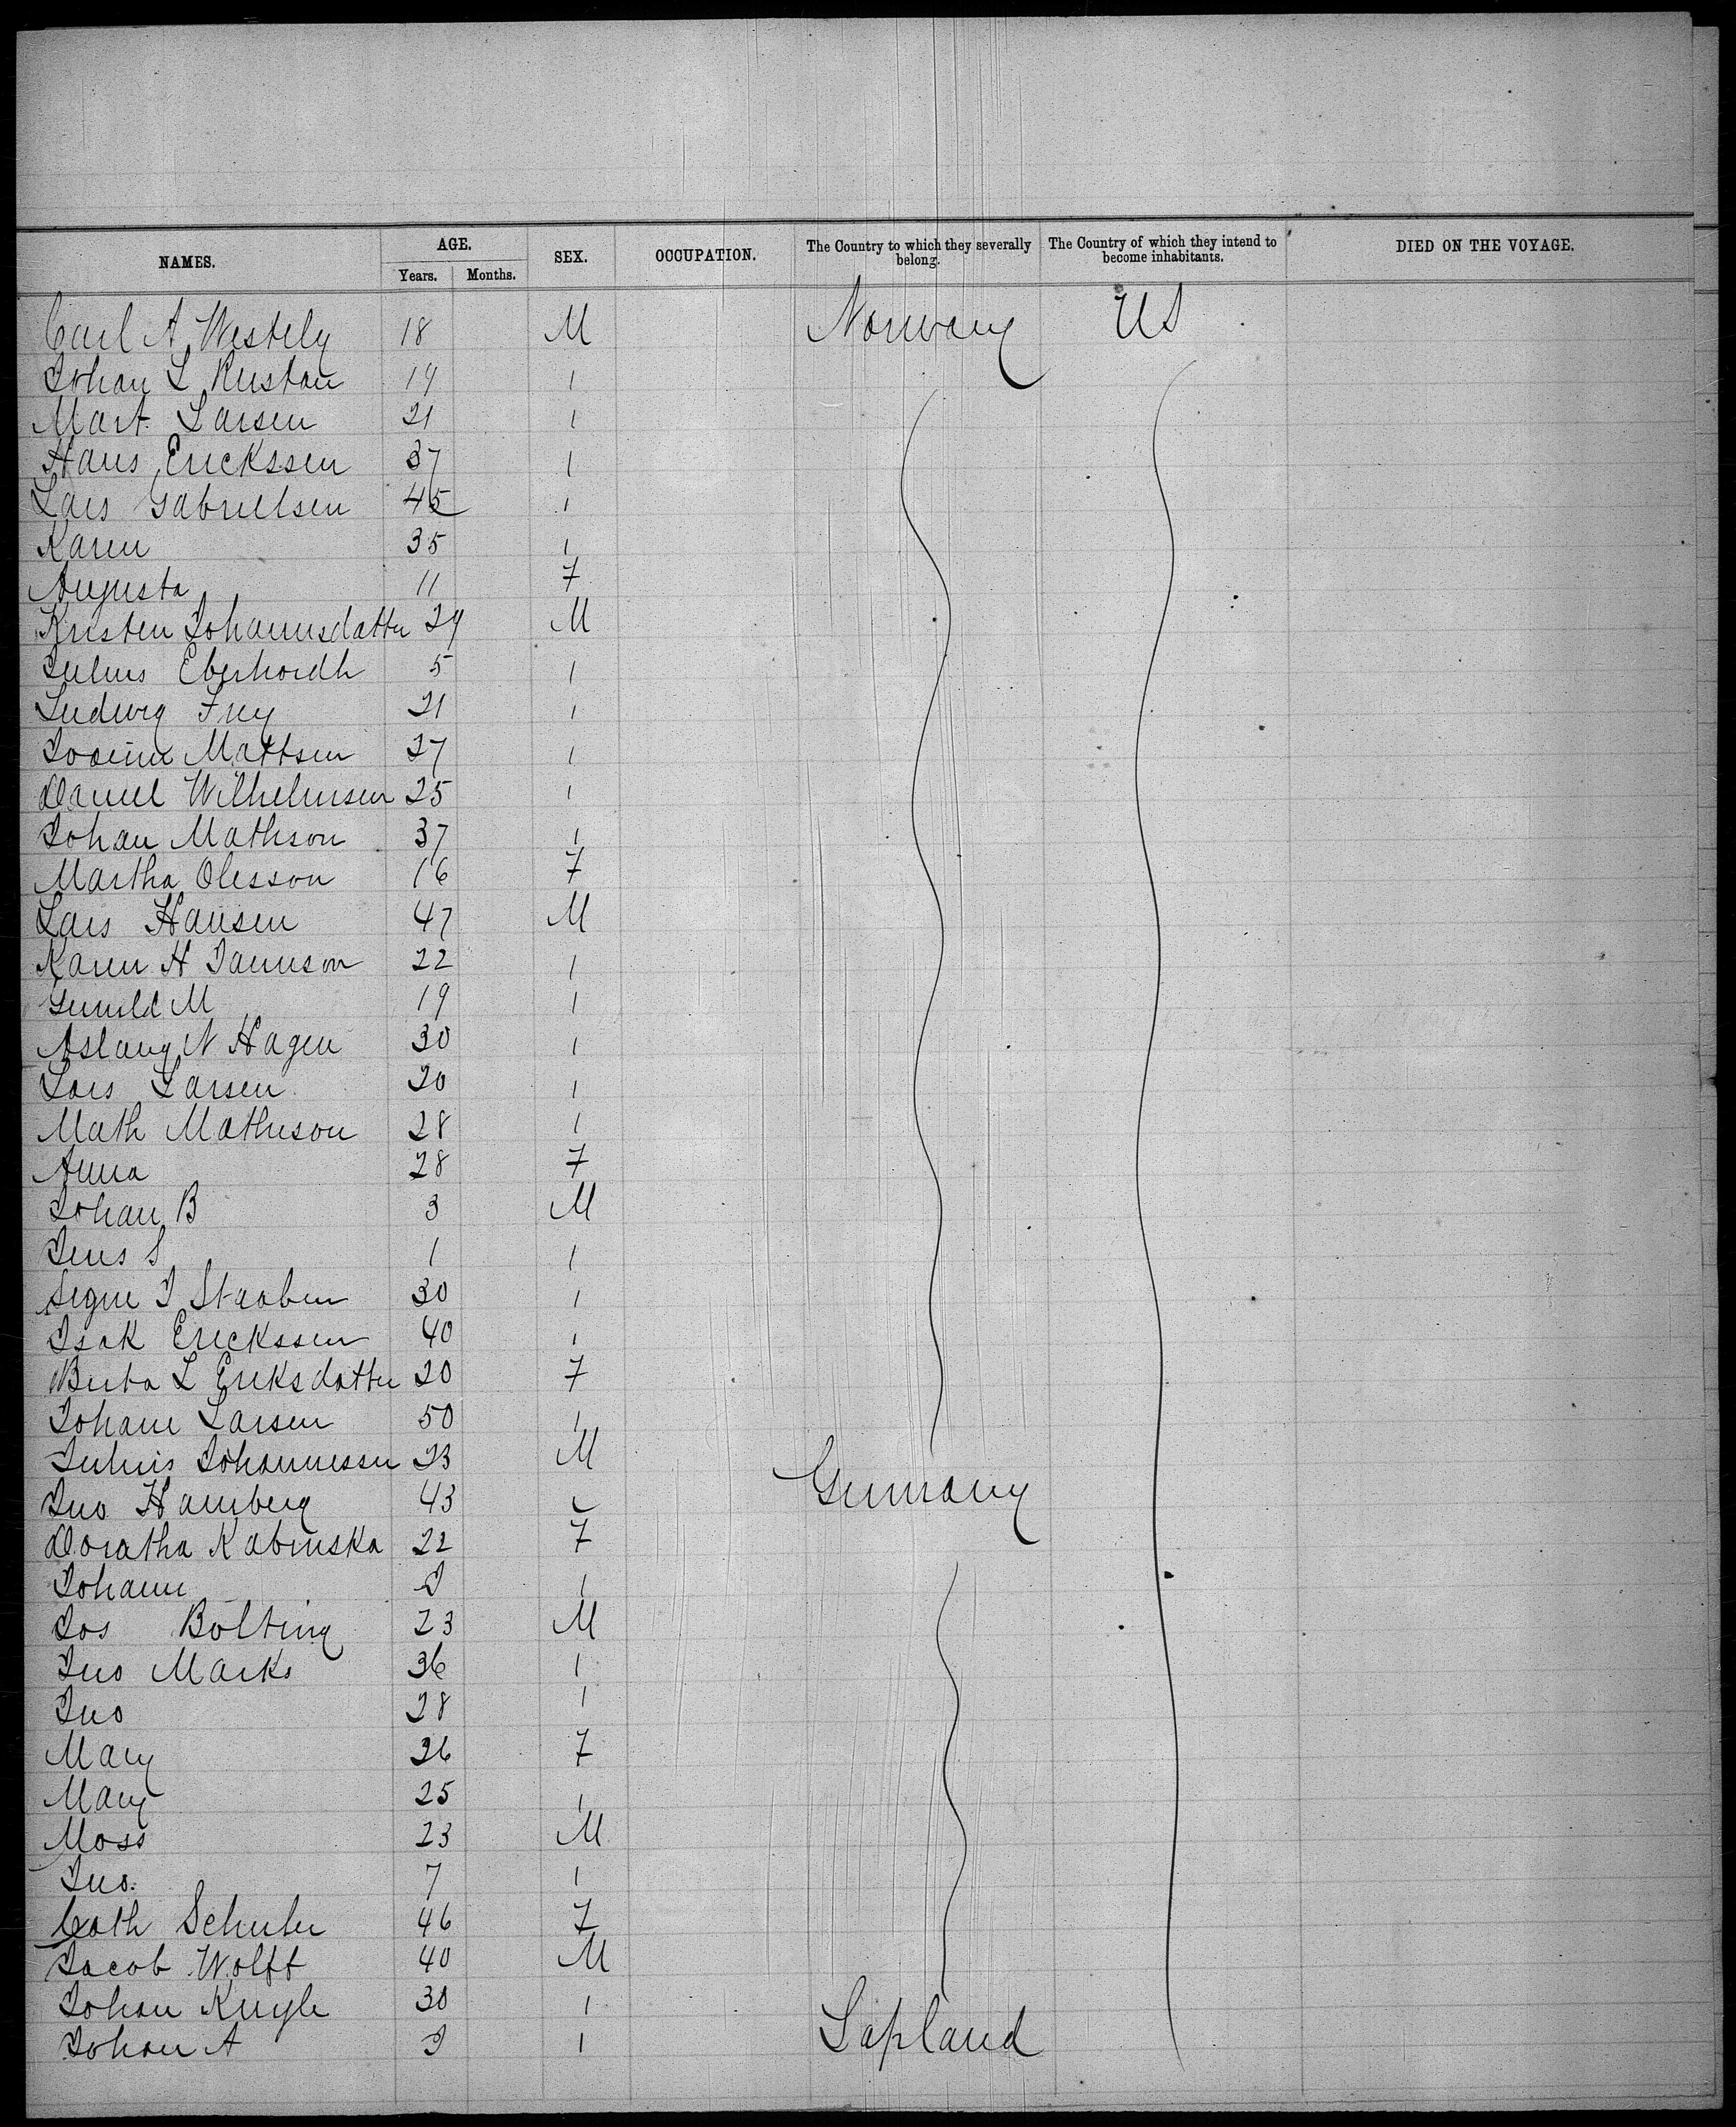 NAMES. AGE. SEX. OCCUPATION. The Country to which they severally belong. The Country of which they intend to become inhabitants. DIED ON THE VOYAGE.
Years. Months.
Carl A Westely 18 M Norway US
Johan L Rustan 19 1
Mart. Larsen 21 1
Hans Erickssen 37 1
Lars Gabrielsen 45 1
Karen 35 1
Augusta 11 F
Kristen Johannsdatter 29 M
Julius Eberhordh 5 1
Ludwig Frey 21 1
Mattsen 27 1
Daniel Wilhelmsen 25 1
Johan Mathson 37 1
Martha Olesson 16 F
Lars Hansen 47 M
Karen H 22 1
Gunild M 19 1
Aslaug N Hagen 30 1
Lars Larsen 20 1
Math Matheson 28 1
Anna 28 F
Johan B 3 M
Jens S 1 1
Signe J 30 1
Isak Erickssen 40 1
Berta L Eriksdatter 20 F
Johane Larsen 50 1
Julius Johannessen 23 M
Jno Hamberg 43 Germany
Doratha Kabinska 22 F
Johann 1
Jos Bolting 23 M
Jno Marks 36 1
Jno 28 1
Mary 26 F
Mary 25 1
Moss 23 M
Jno. 7 1
Cath Schuler 46 F
Jacob Wolff 40 M
Johan 30 1
Johan A 1 Lapland